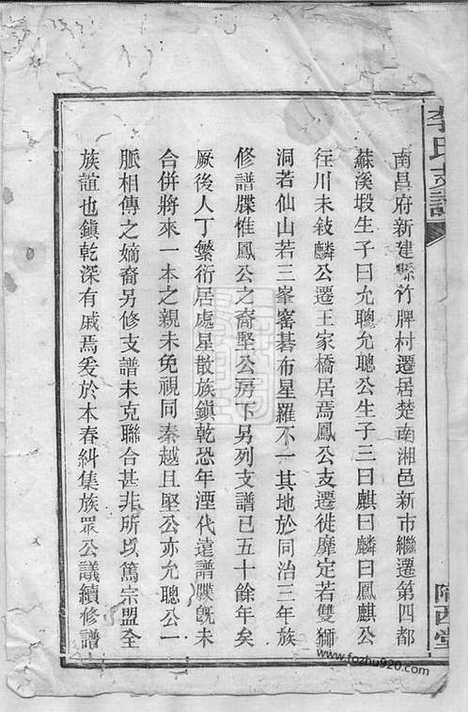 李氏支譜
南昌府新建縣竹牌村遷居楚南湘邑新市繼遷第四都
蘇溪塅生子曰允聰允聰公生子三曰麒曰麟曰鳳麒公
往川未敍麟公遷王家橋居焉鳳公支遷徙靡定若雙獅
洞若仙山若三峯窖碁布星羅不一其地於同治三年族
修譜牒惟鳳公之裔堅公房下另列支譜已五十餘年矣
厥後人丁繁衍居處星散族鎭乾恐年湮代遠譜牒旣未
合併將來一本之親未免視同秦越且堅公亦允聰公一
脈相傳之嫡裔另修支譜未克聯合甚非所以篤宗盟全
族誼也鎭乾深有戚焉爰於木春糾集族眾公議續修譜
隴西堂
www.fozhu920.com